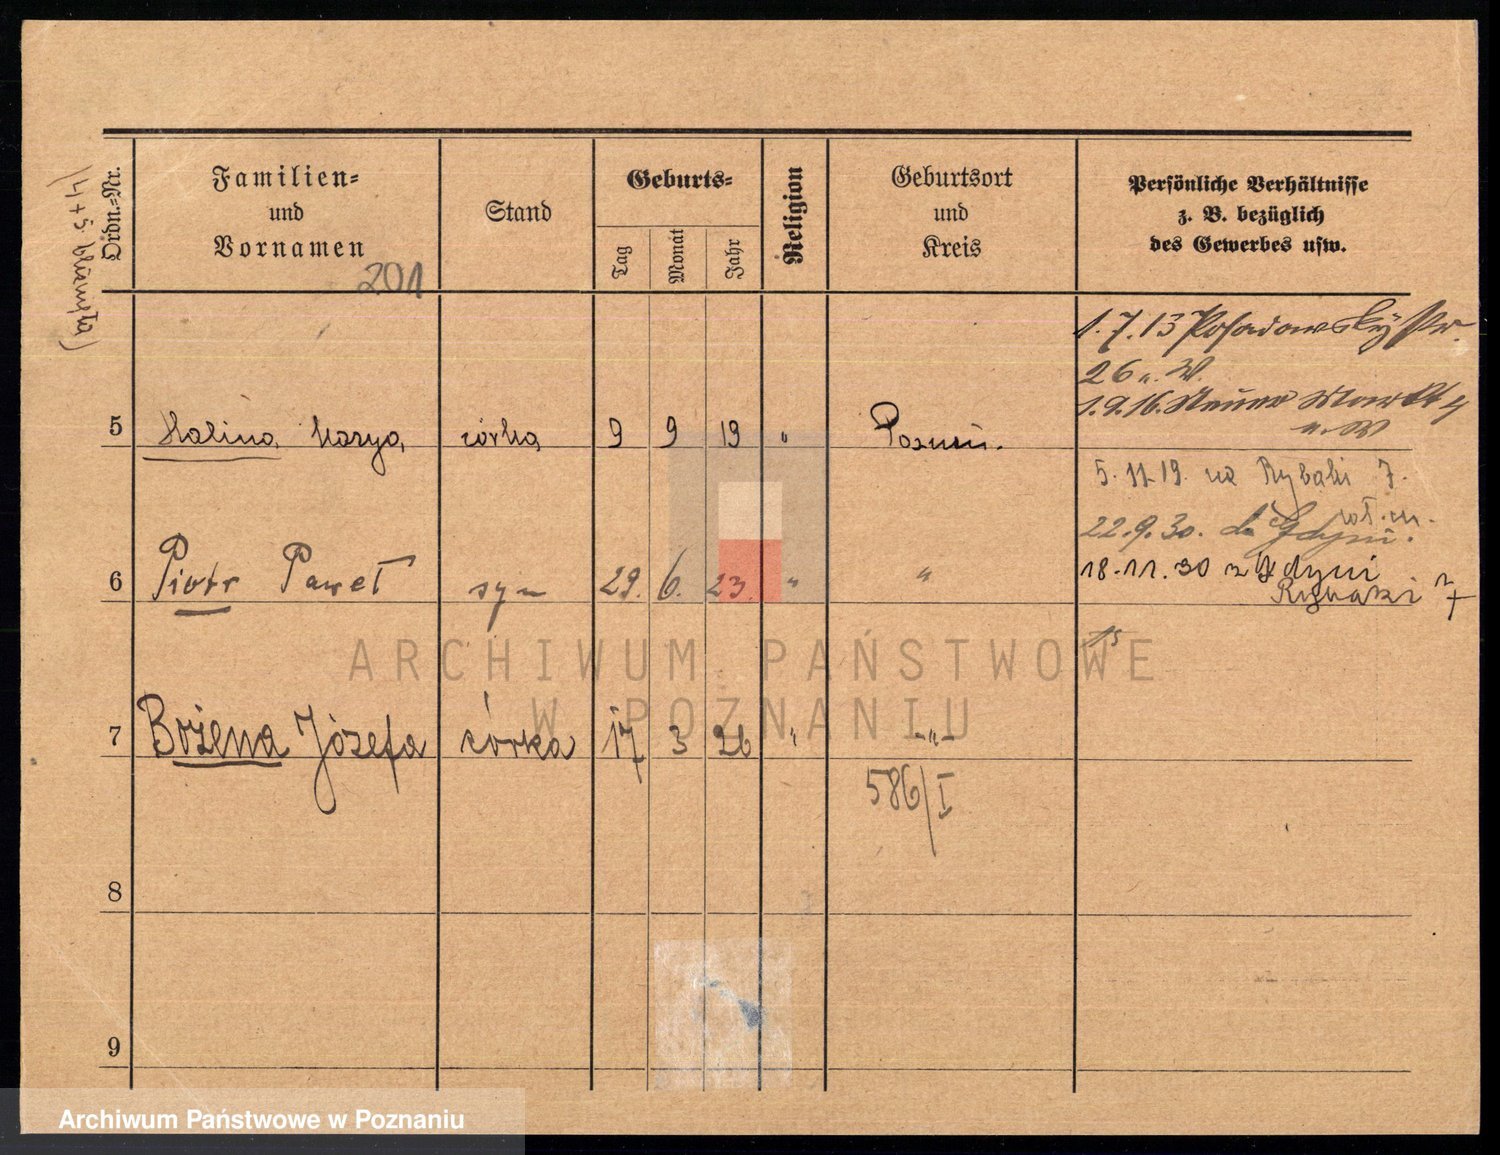 (4+5 bliźnięta)
Ordn.-Nr.
Familien-
und
Vornamen
201
Stand
Geburts-
Tag
Monat
Jahr
Religion
Geburtsort
und
Kreis
Persönliche Verhältnisse
z. B. bezüglich
des Gewerbes usw.
1.7.13 Posadowskystr.
26 u. W.
1.9.16. Neuer Markt 4
u. W
5 Halina Marya córka 9 9 19 " Poznań.
5.11.19. na Rybaki 7.
22.9.30. do Gdyni.
6 Piotr Paweł syn 29. 6. 23. " "
18.11.30 z Gdyni
Rybaki 7
15
7 Bożena Józefa córka 17 3 26 " -"-
586/I
8
9
ARCHIWUM PAŃSTWOWE
W POZNANIU
Archiwum Państwowe w Poznaniu